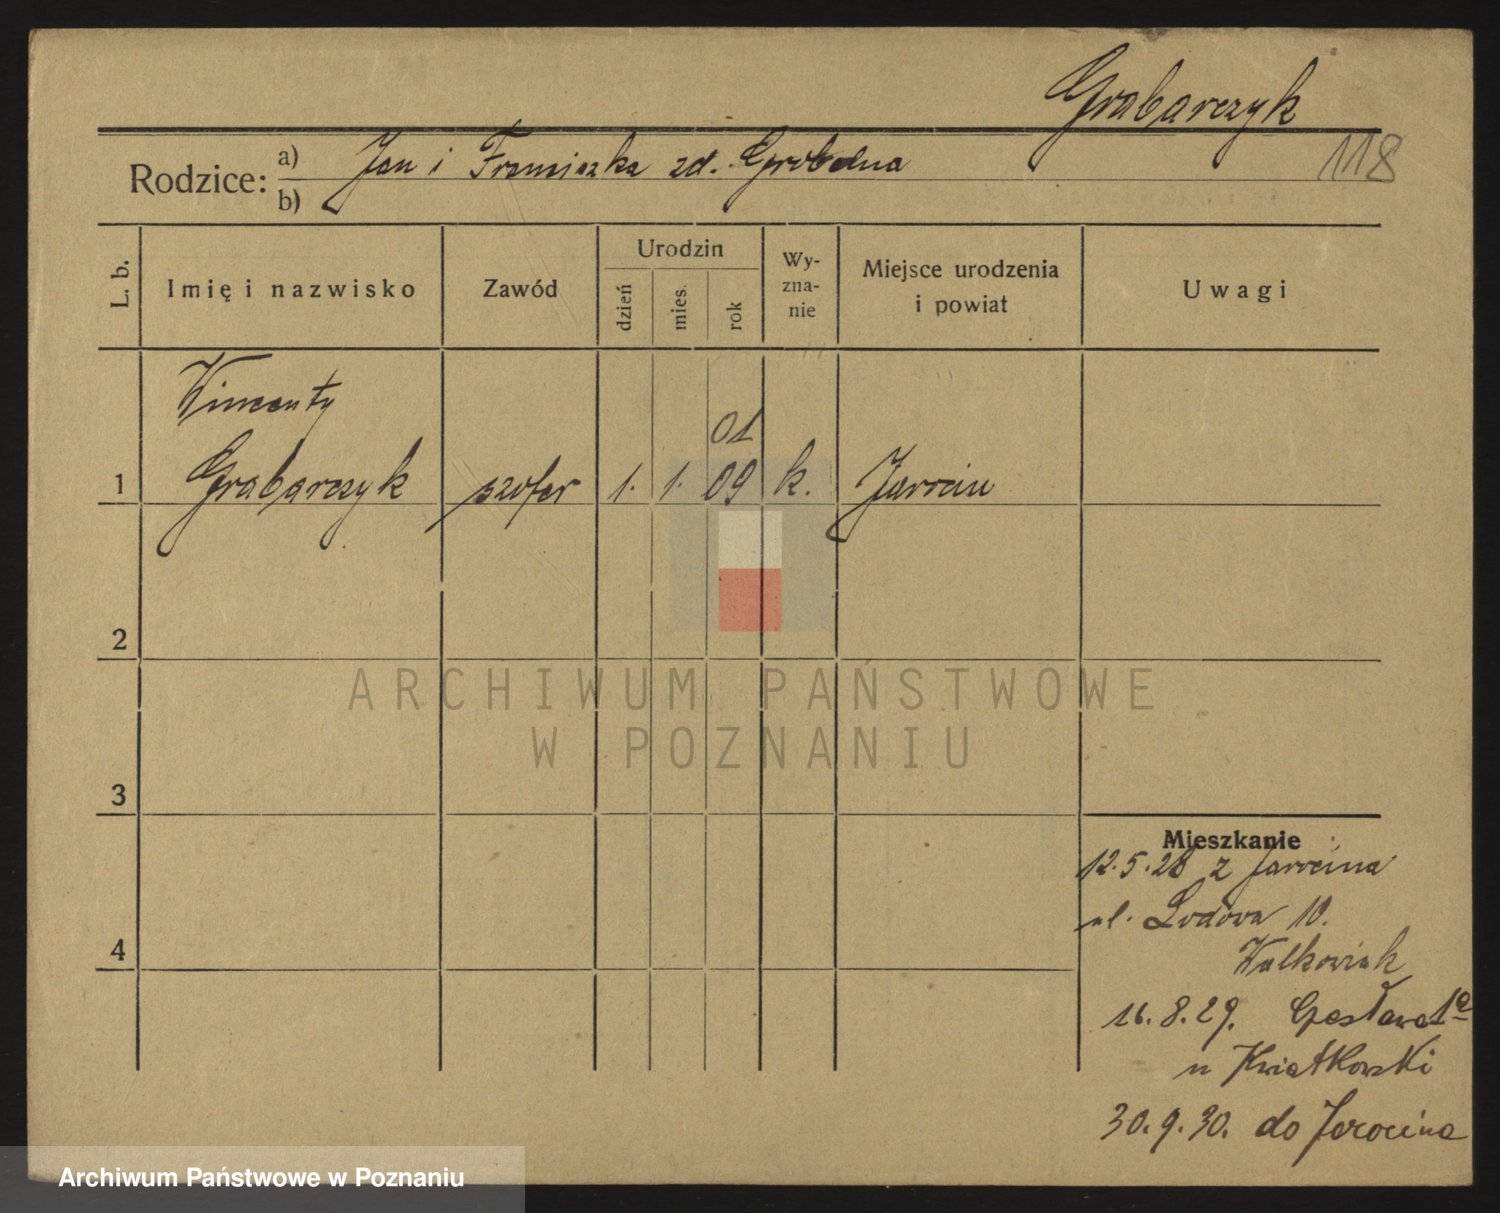 Grabarczyk
118
Rodzice: a) Jan i Franciszka zd. Grobelna
b)
L. b. Imię i nazwisko Zawód Urodzin dzień mies. rok Wy-zna-nie Miejsce urodzenia i powiat Uwagi
Wincenty
01
1 Grabarczyk szofer 1. 1. 09 k. Jarocin
2
3
4
Mieszkanie
12.5.28 z Jarocina
ul. Lodowa 10.
Walkowiak
16.8.29. Czesława 1a
u Kwiatkowski
30.9.30. do Jarocina
ARCHIWUM PAŃSTWOWE
W POZNANIU
Archiwum Państwowe w Poznaniu